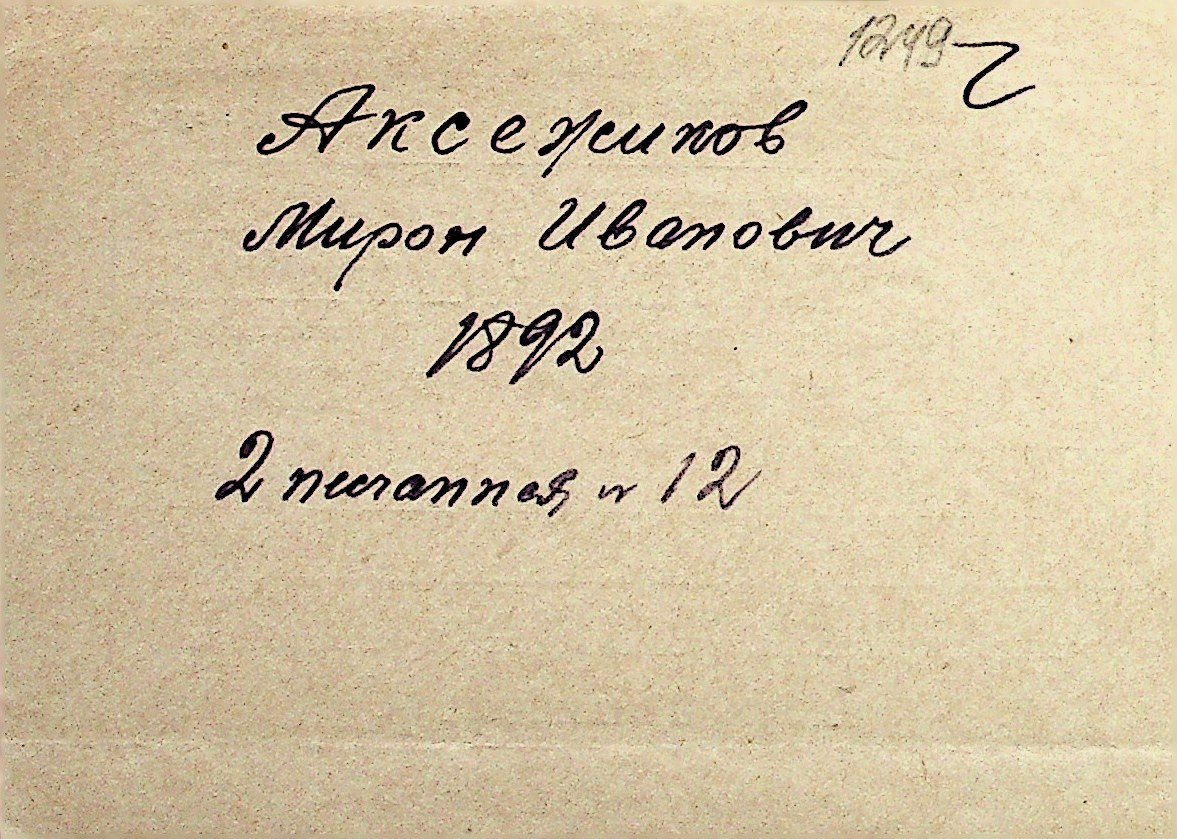 1249
Аксежиков
Мирон Иванович
1892
2 песчанная, 12